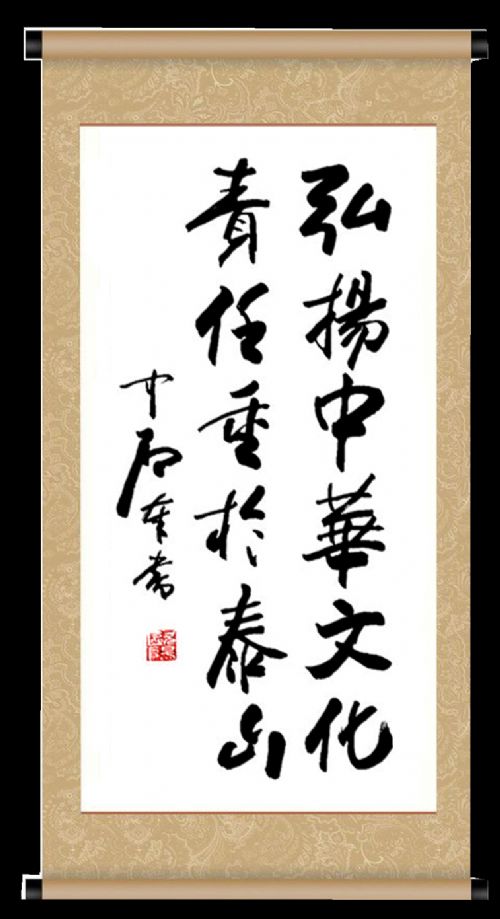 弘揚中華文化
責任重於泰山
中石